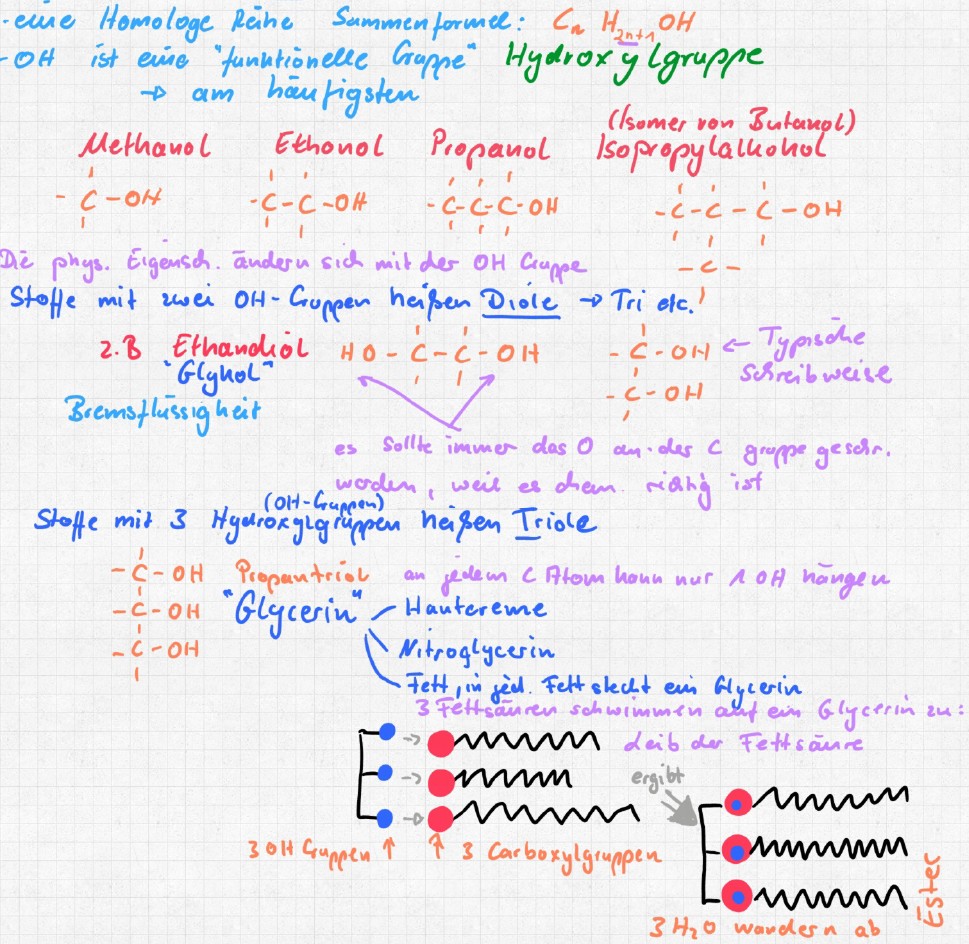 - eine Homologe Reihe Summenformel: Cn H2n+1 OH
- OH ist eine "funktionelle Gruppe" Hydroxylgruppe
→ am häufigsten
(Isomer von Butanol)
Methanol Ethanol Propanol Isopropylalkohol
- C - OH - C - C - OH - C - C - C - OH - C - C - C - OH
- C -
Die phys. Eigensch. ändern sich mit der OH Gruppe
Stoffe mit zwei OH-Gruppen heißen Diole → Tri etc.
z.B Ethandiol HO - C - C - OH - C - OH ← Typische
"Glykol" Schreibweise
- C - OH
Bremsflüssigkeit
es sollte immer das O an das C gruppe geschr.
werden, weil es chem. richtig ist
(OH-Gruppen)
Stoffe mit 3 Hydroxylgruppen heißen Triole
- C - OH Propantriol an jedem C Atom kann nur 1 OH hängen
- C - OH "Glycerin" Hautcreme
- C - OH Nitroglycerin
Fett, in jed. Fett steckt ein Glycerin
3 Fettsäuren schwimmen auf ein Glycerin zu:
Leib der Fettsäure
ergibt
3 OH Gruppen ↑ ↑ 3 Carboxylgruppen
Ester
3 H2O wandern ab